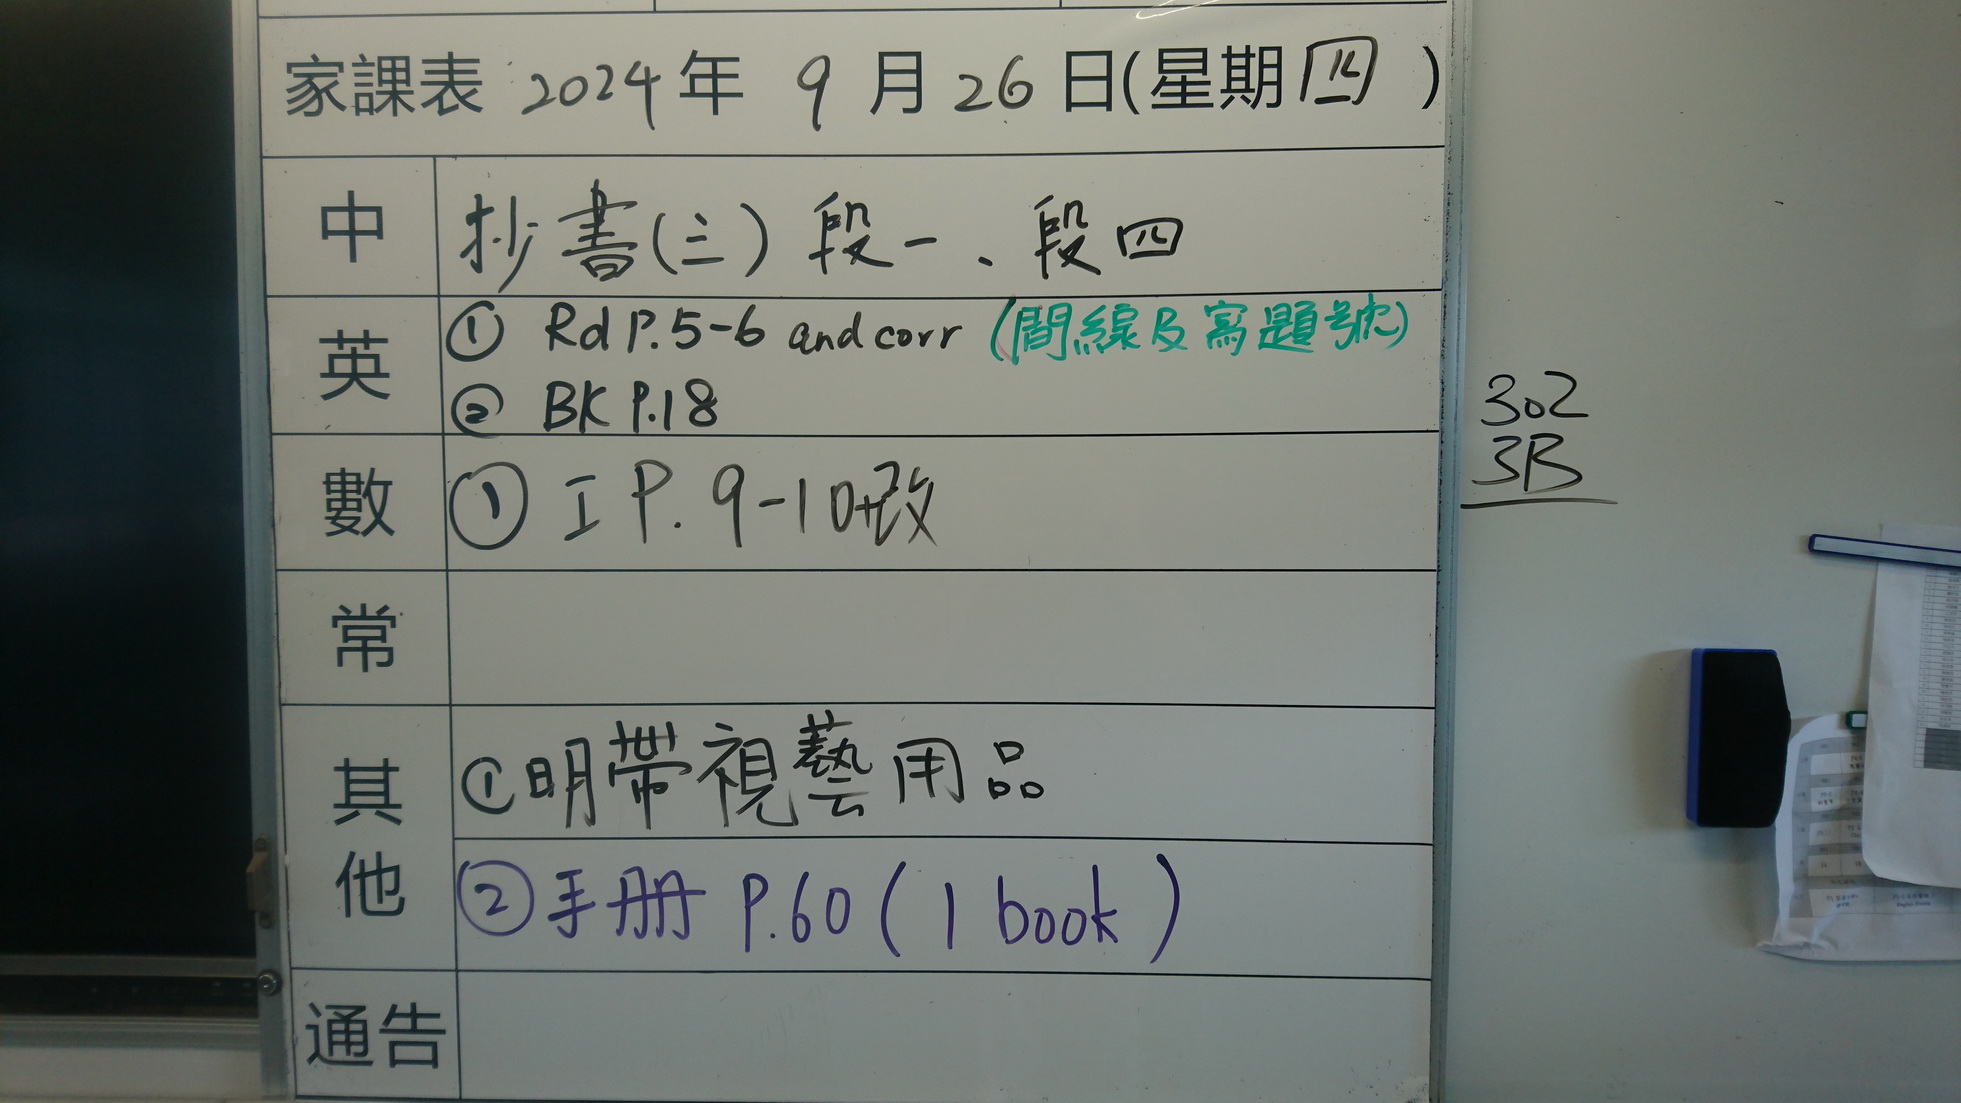 家課表 2024年 9月26日(星期四)
中 抄書(三)段一、段四
英 ① Rd P.5-6 and corr (間線及寫題號)
② BK P.18
數 ① I P.9-10+改
常
其他 ①明帶視藝用品
②手册 P.60 (1 book)
通告
302
3B